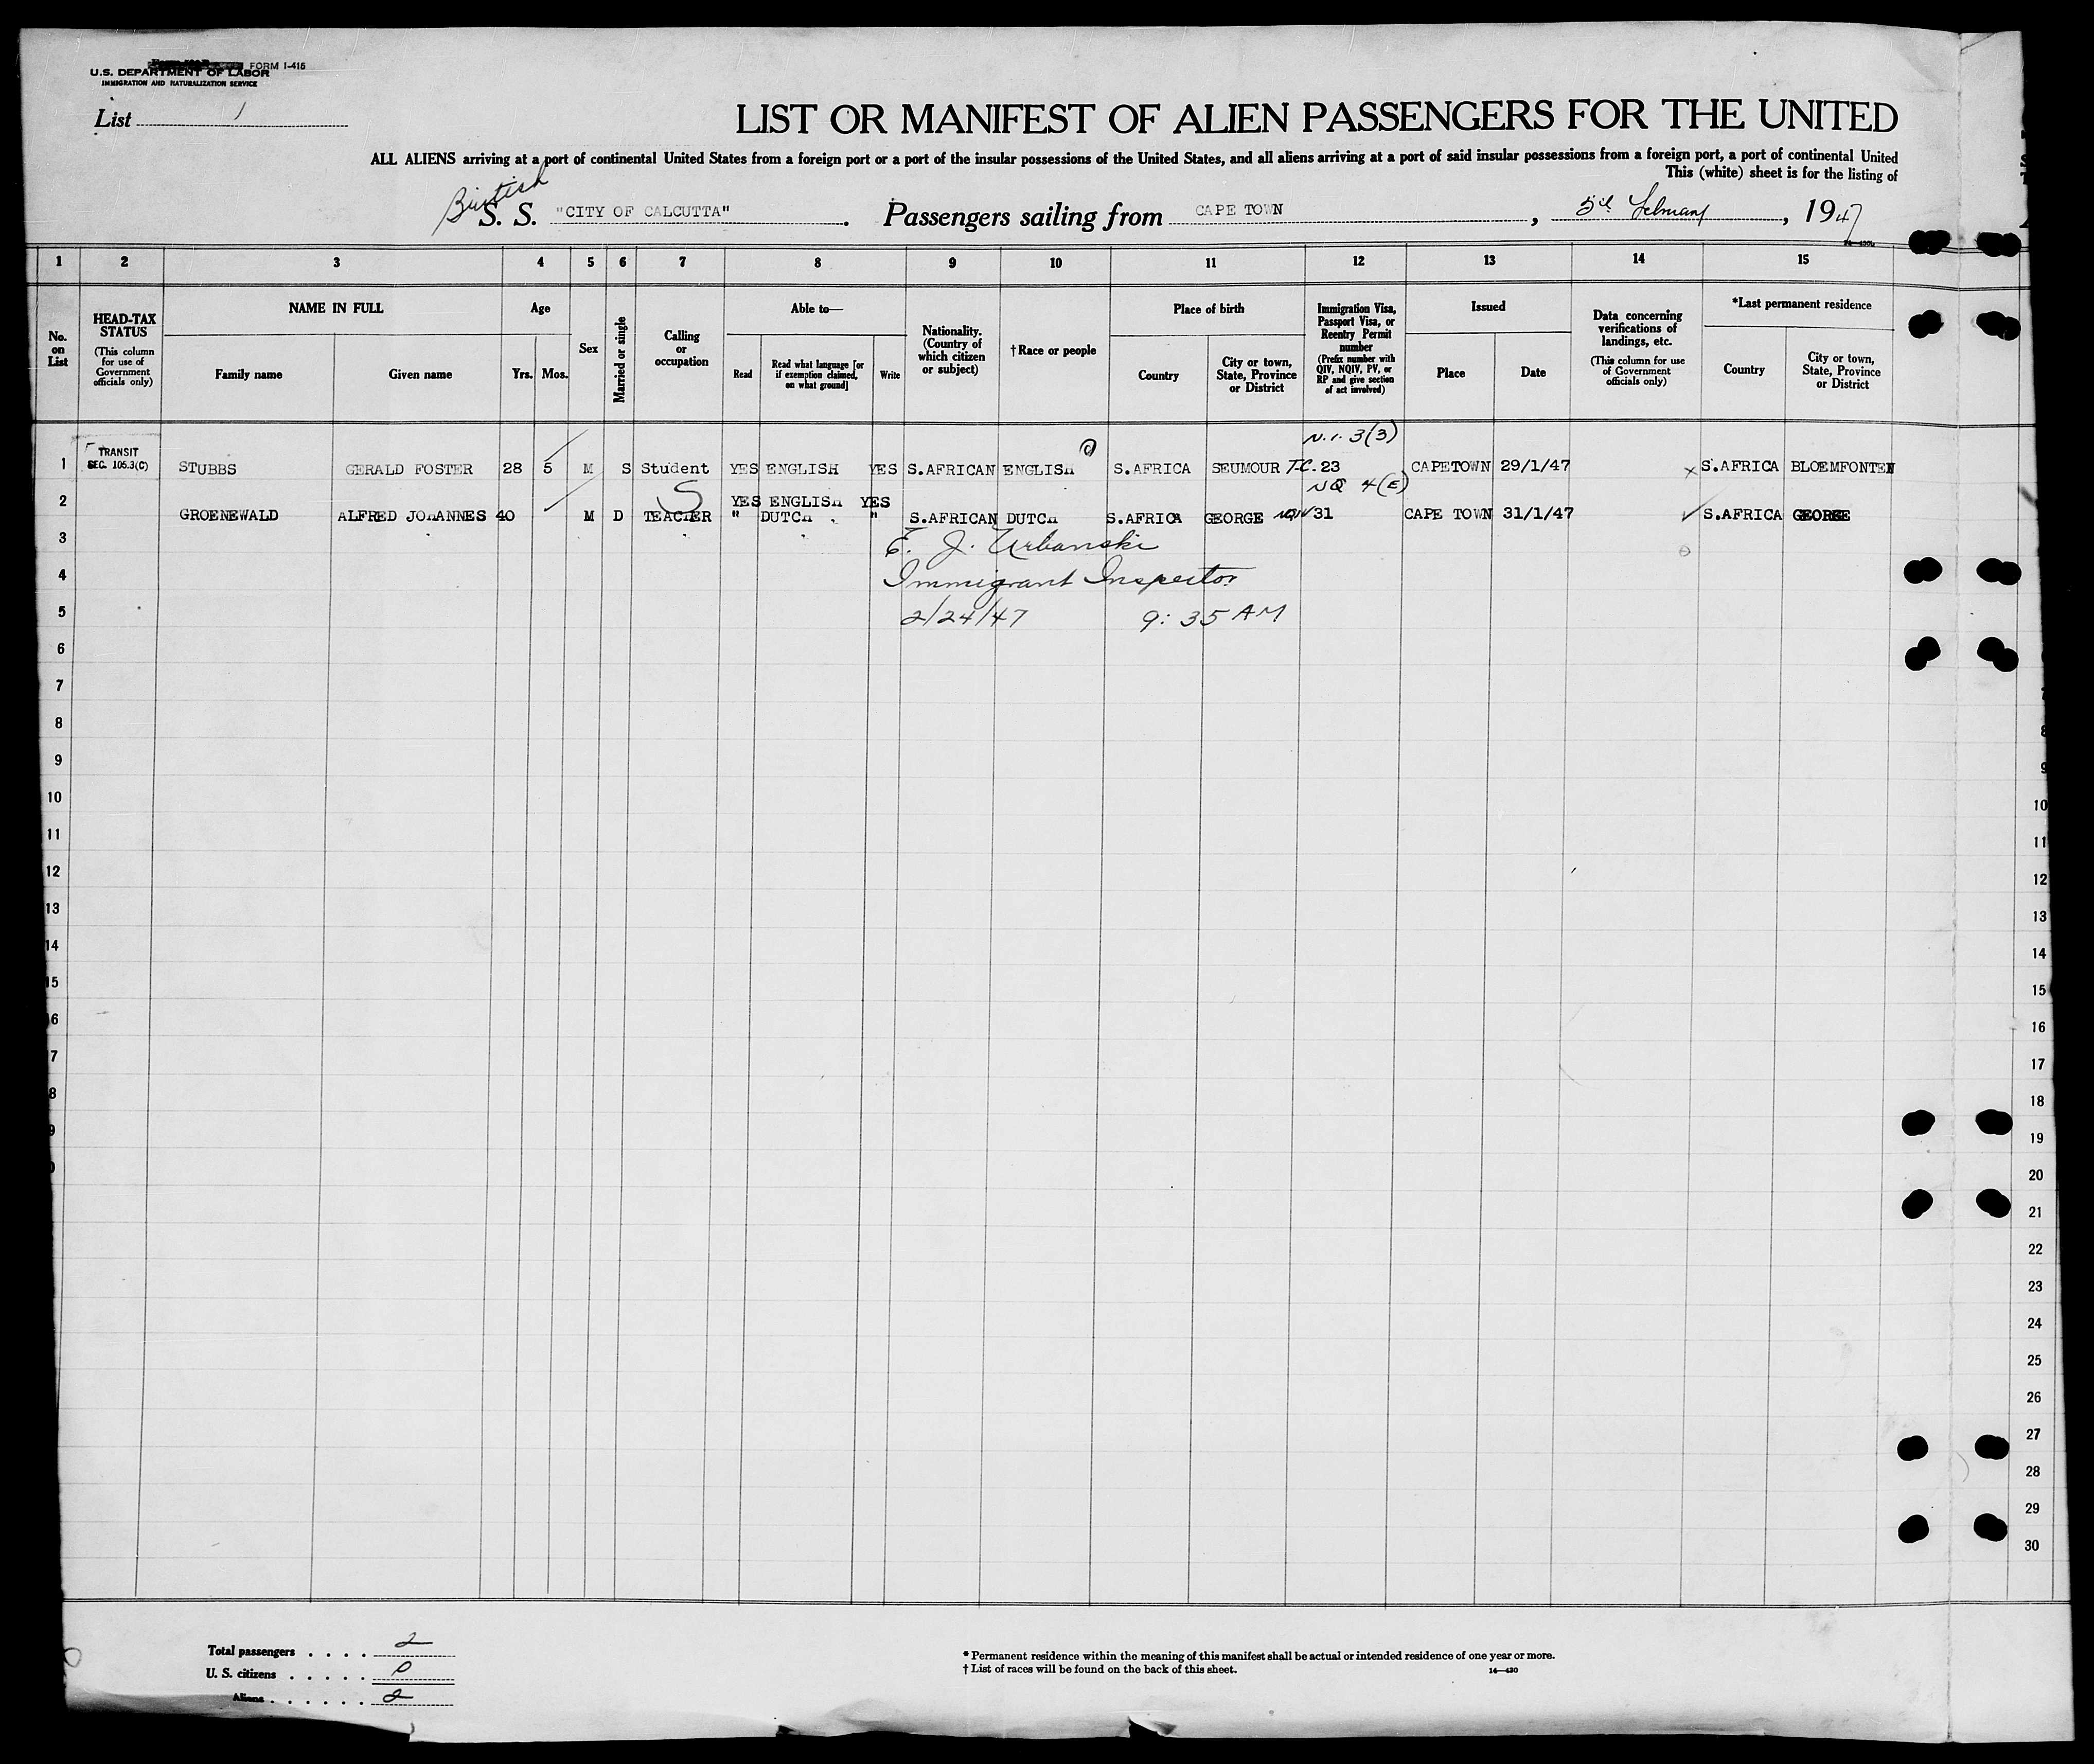 FORM I-415
U.S. DEPARTMENT OF LABOR
IMMIGRATION AND NATURALIZATION SERVICE
List 1
LIST OR MANIFEST OF ALIEN PASSENGERS FOR THE UNITED
ALL ALIENS arriving at a port of continental United States from a foreign port or a port of the insular possessions of the United States, and all aliens arriving at a port of said insular possessions from a foreign port, a port of continental United
This (white) sheet is for the listing of
British
S. S. "CITY OF CALCUTTA". Passengers sailing from CAPE TOWN, 5th February, 1947
1 2 3 4 5 6 7 8 9 10 11 12 13 14 15
No. on List
HEAD-TAX STATUS (This column for use of Government officials only)
NAME IN FULL
Family name Given name
Age
Yrs. Mos.
Sex
Married or single
Calling or occupation
Able to—
Read Read what language [or if exemption claimed, on what ground] Write
Nationality. (Country of which citizen or subject)
†Race or people
Place of birth
Country City or town, State, Province or District
Immigration Visa, Passport Visa, or Reentry Permit number (Prefix number with QIV, NQIV, PV, or RP and give section of act involved)
Issued
Place Date
Data concerning verifications of landings, etc. (This column for use of Government officials only)
*Last permanent residence
Country City or town, State, Province or District
N.I. 3(3)
1 TRANSIT SEC. 105.3(C) STUBBS GERALD FOSTER 28 5 M S Student YES ENGLISH YES S.AFRICAN ENGLISH S.AFRICA SEUMOUR T.C. 23 CAPETOWN 29/1/47 x S.AFRICA BLOEMFONTEN
S NQ 4(E)
YES ENGLISH YES
2 GROENEWALD ALFRED JOHANNES 40 M D TEACHER " DUTCH " S.AFRICAN DUTCH S.AFRICA GEORGE NQIV 31 CAPE TOWN 31/1/47 S.AFRICA GEORGE
3 E. J. Urbanski
4 Immigrant Inspector
5 2/24/47 9:35 AM
6
7
8 8
9 9
10 10
11 11
12 12
13 13
14 14
15 15
16 16
17 17
18 18
19 19
20
21
22
23
24
25
26
27
28
29
30
Total passengers . . . . 2
U. S. citizens . . . . . 0
Aliens . . . . . . 2
* Permanent residence within the meaning of this manifest shall be actual or intended residence of one year or more.
† List of races will be found on the back of this sheet. 14—430